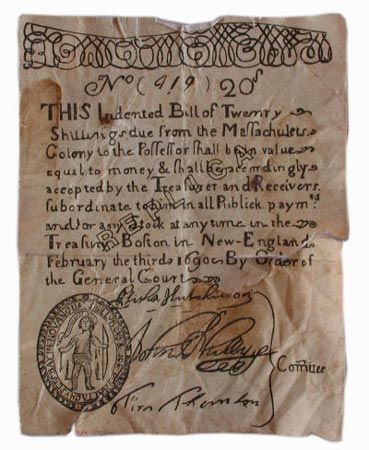 No (919) 20s
THIS Indented Bill of Twenty
Shillings due from the Massachusets
Colony to the Possessor shall be in value
equal to money & shall be accordingly
accepted by the Treasurer and Receivers
subordinate to him in all Publick paymts
and for any Stock at any time in the
Treasury Boston in New-England
February the third 1690. By Order of
the General Court
REPLICA
Elisha Hutchinson
Tim Thornton
Comittee